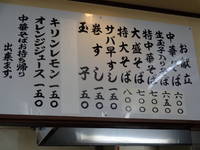 お献立
中華そば 六〇〇
生玉子入りそば 六五〇
特中華そば 七〇〇
大盛そば 七〇〇
特大そば 八〇〇
サバ早すし 一五〇
巻すし 一五〇
玉子 五〇
キリンレモン 一五〇
オレンジジュース 一五〇
中華そばお持ち帰り
出来ます。